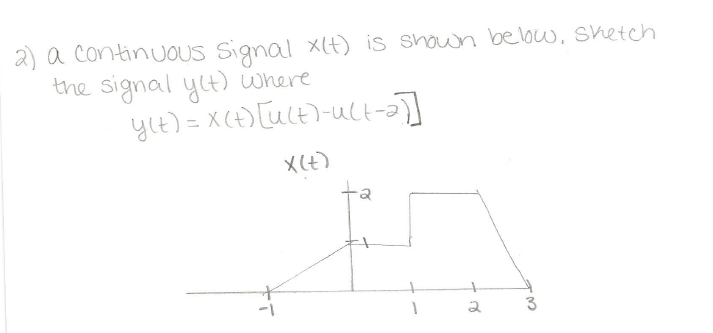 2) a continuous signal x(t) is shown below. Sketch
the signal y(t) where
y(t) = x(t)[u(t)-u(t-2)]
x(t)
2
1
-1 1 2 3